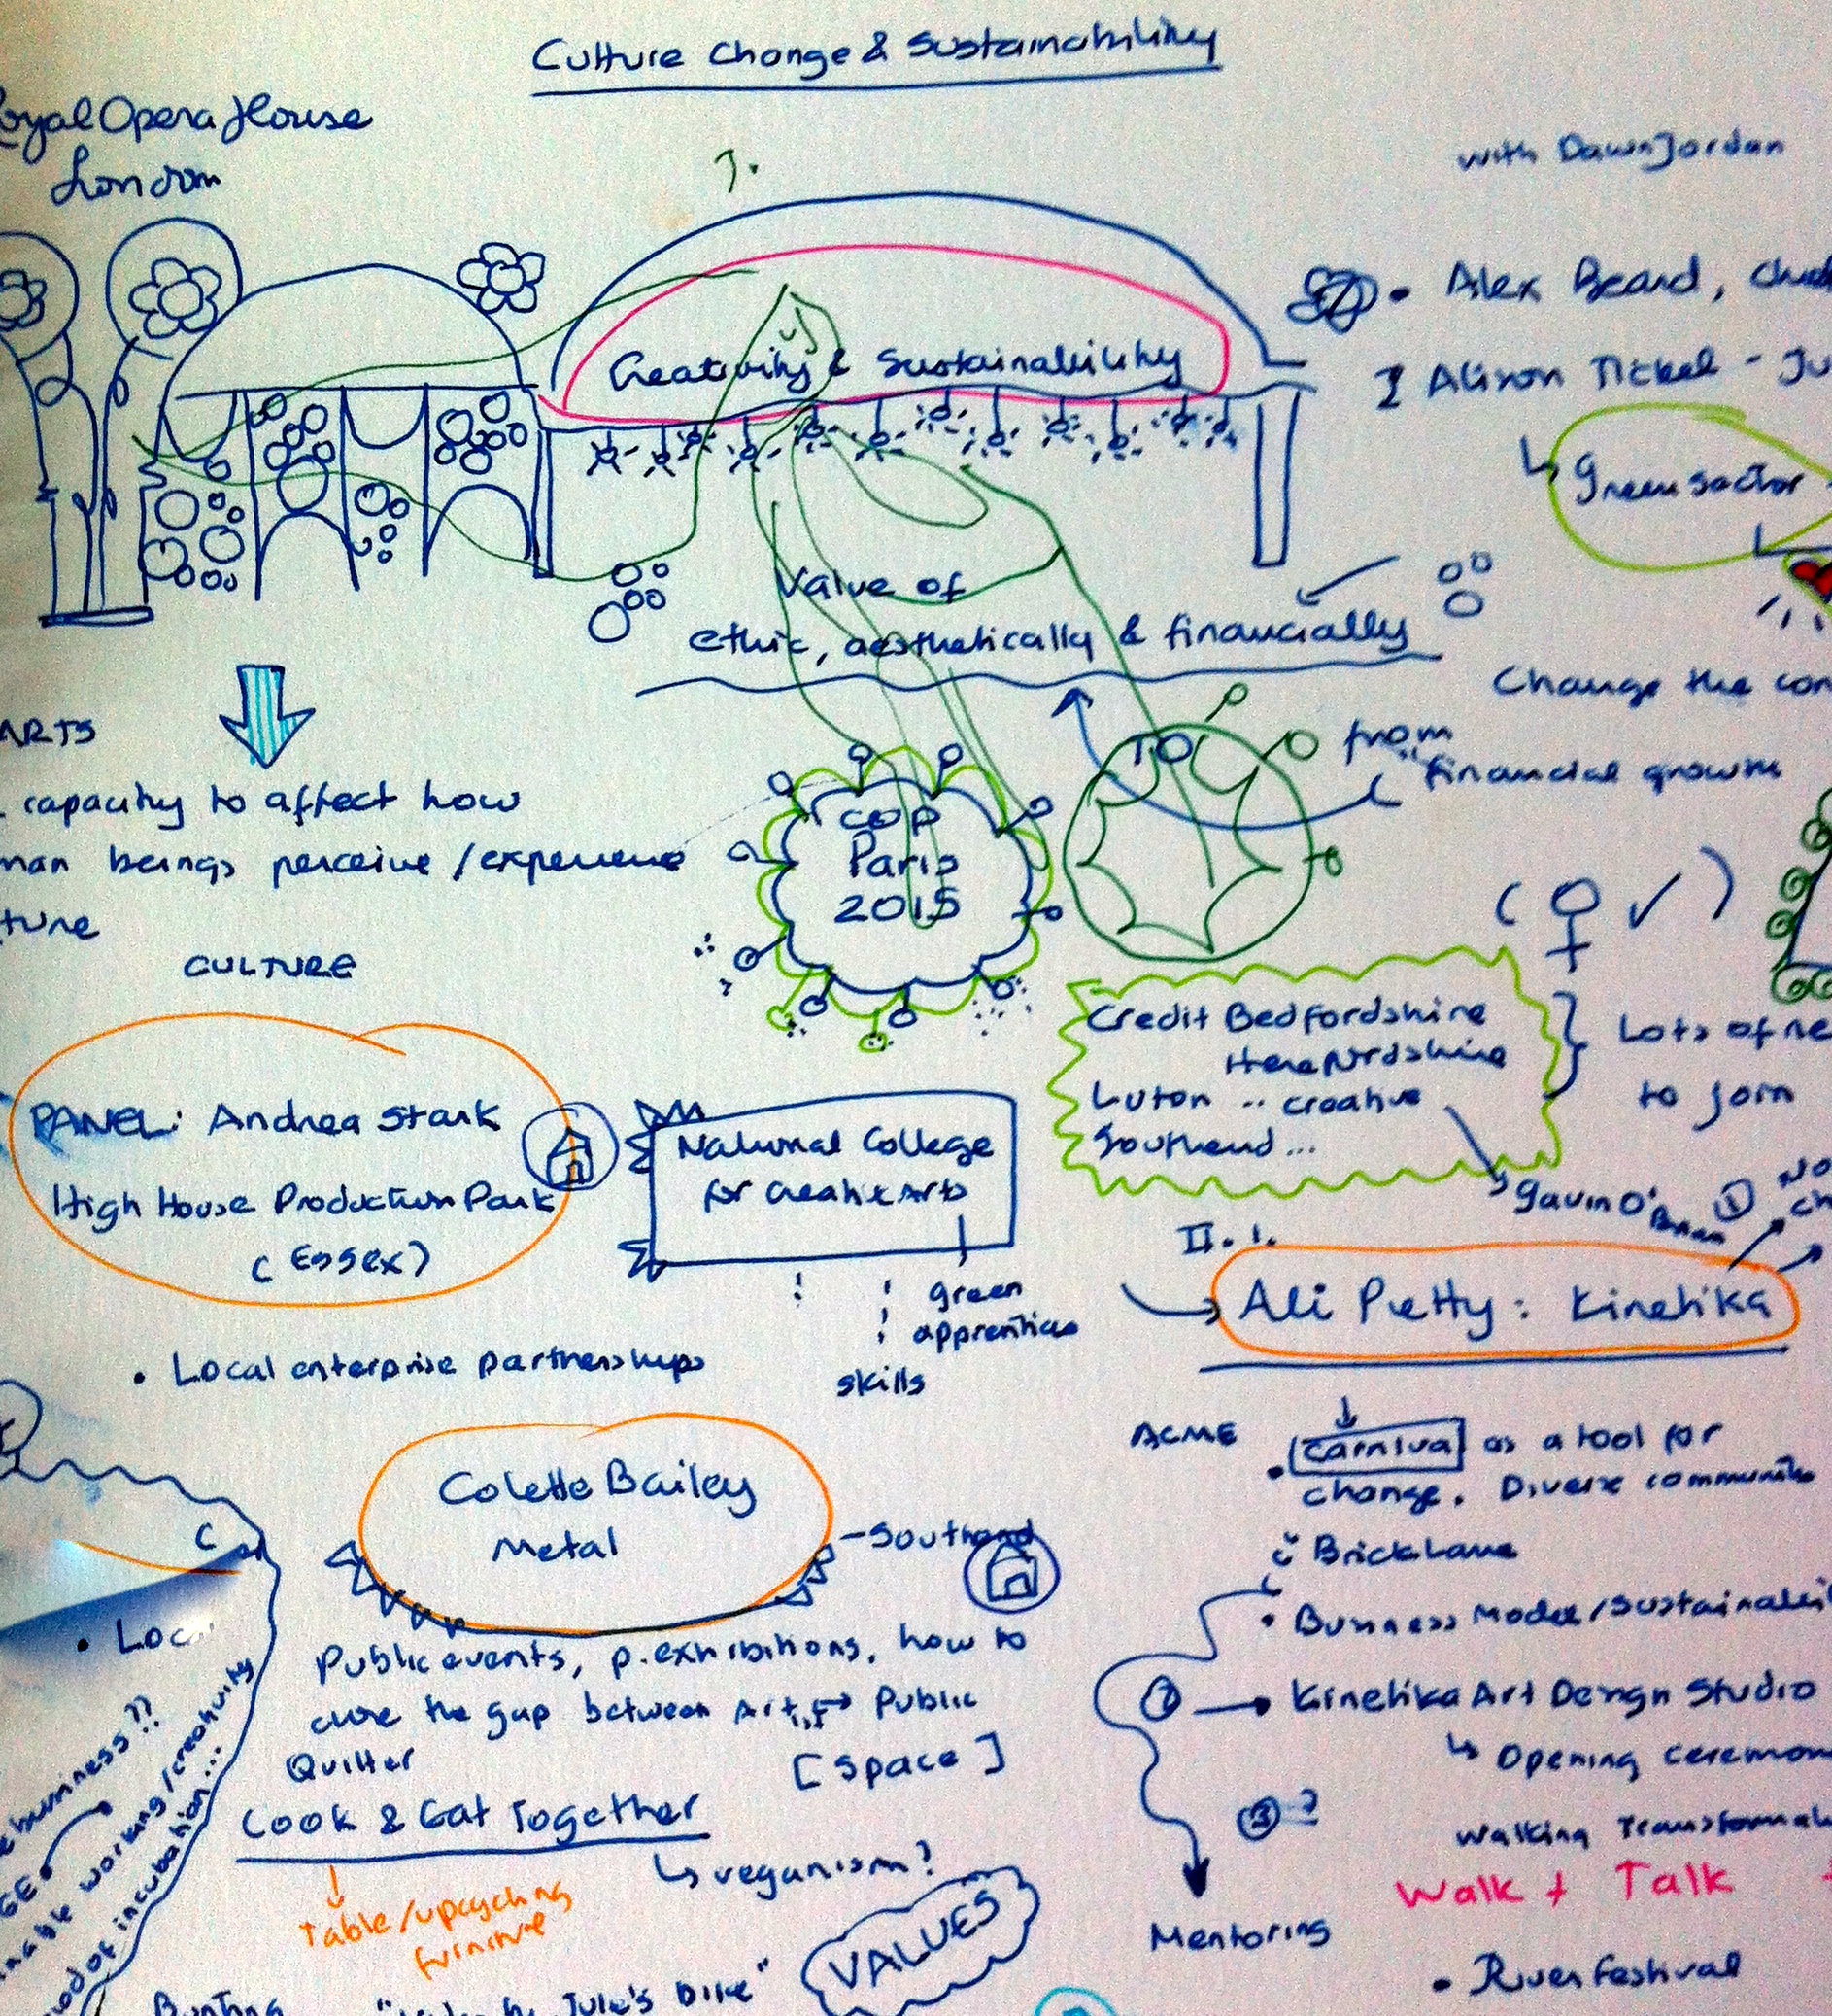 Culture Change & Sustainability
Royal Opera House
London
with Dawn Jordan
1.
• Alex Beard,
Alison Tickel - Ju
Creativity & Sustainability
Green sector
Value of
ethic, aesthetically & financially
Change the con
TO
from
"financial growth
ARTS
capacity to affect how
man beings perceive / experience
ture
CULTURE
COP
Paris
2015
( ♀ ✓ )
Credit Bedfordshire
Herefordshire
Luton .. creative
Southend ...
Lots of ne
to join
Gavin O'
PANEL: Andrea Stark
High House Production Park
( Essex )
National College
for Creative Arts
green
apprentices
skills
• Local enterprise partnerships
II. 1.
①
No
ch
Ali Pretty : Kinetika
ACME
• Carnival as a tool for
change. Diverse communities
Brick Lane
• Business Model / Sustainabili
② → Kinetika Art Design Studio
↳ Opening ceremon
③ ?
Walking Transformat
Walk + Talk +
Mentoring
• River Festival
Colette Bailey
Metal
- Southend
Public events, p. exhibitions, how to
cure the gap between Art ↔ Public
[ space ]
Quilter
Cook & Eat Together
↳ veganism?
Table / upcycling
furniture
VALUES
C
• Loc
business??
GE
nable working / creativity
mod of incubation...
Bunting
Jule's Dike"